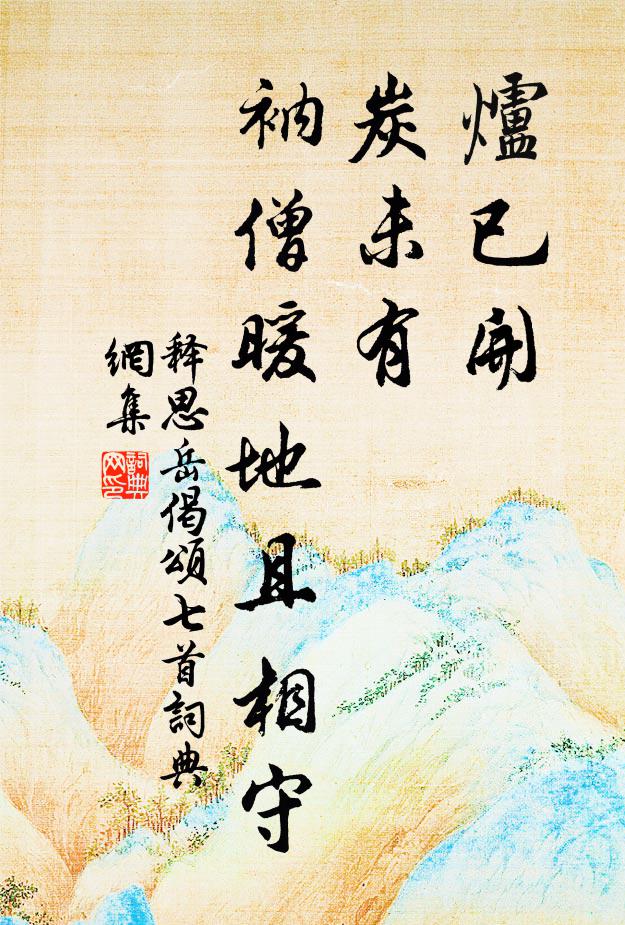 爐已開
炭未有
衲僧暖地且相守
释思岳偈頌七首詞典
網集
詞典網印